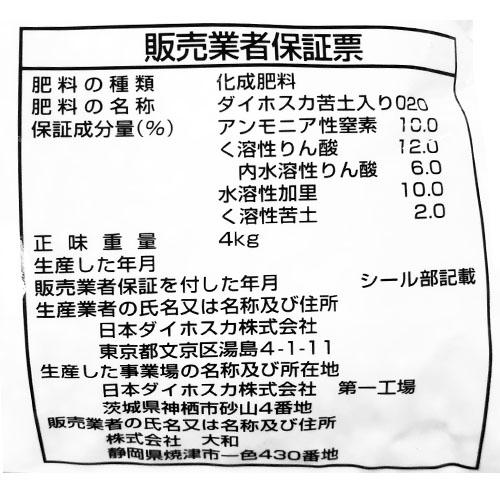 販売業者保証票
肥料の種類 化成肥料
肥料の名称 ダイホスカ苦土入り020
保証成分量(%) アンモニア性窒素 10.0
く溶性りん酸 12.0
内水溶性りん酸 6.0
水溶性加里 10.0
く溶性苦土 2.0
正味重量 4kg
生産した年月
販売業者保証を付した年月 シール部記載
生産業者の氏名又は名称及び住所
日本ダイホスカ株式会社
東京都文京区湯島4-1-11
生産した事業場の名称及び所在地
日本ダイホスカ株式会社 第一工場
茨城県神栖市砂山4番地
販売業者の氏名又は名称及び住所
株式会社 大和
静岡県焼津市一色430番地